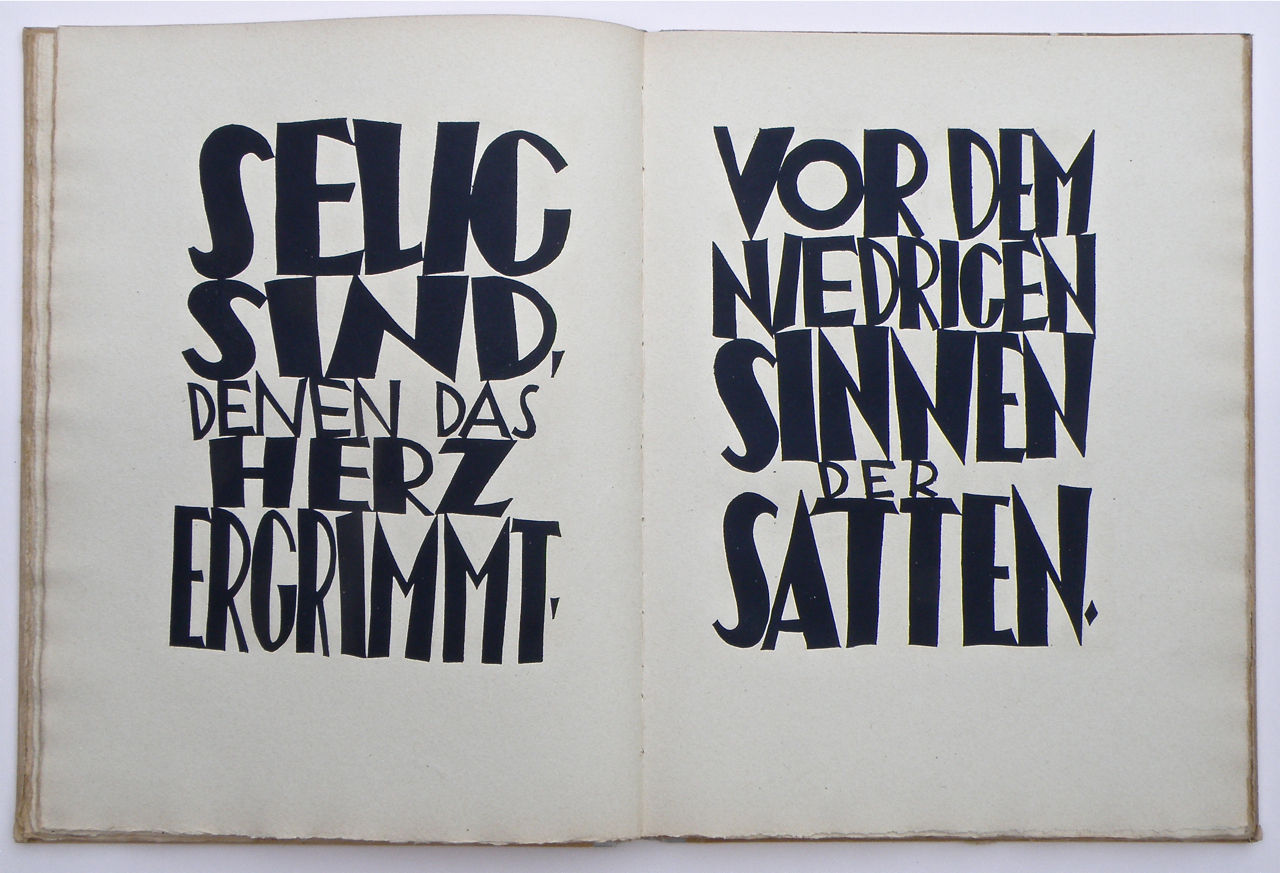 SELIG
SIND,
DENEN DAS
HERZ
ERGRIMMT,
VOR DEM
NIEDRIGEN
SINNEN
DER
SATTEN.